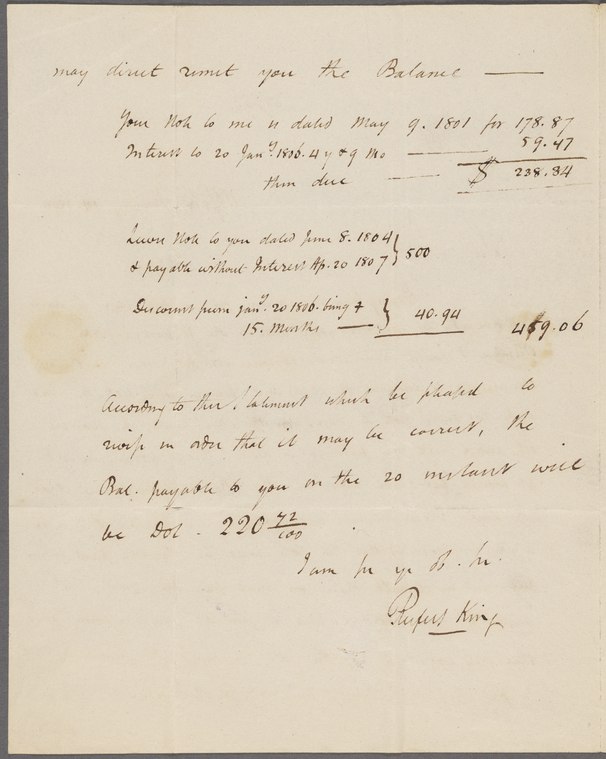 may direct remit you the Balance —
Your Note to me is dated May 9. 1801 for 178.87
Interest to 20 Jany. 1806. 4 y & 9 Mo — 59.47
then due — $ 238.34
Note to you dated June 8. 1804
& payable without Interest Ap. 20 1807 } 500
Discount from jany. 20 1806. being
15. Months — } 40.94 459.06
According to this Statement which be pleased to
revise in order that it may be correct, the
Bal. payable to you on the 20 instant will
be Dol. 220 72/100.
I am Sir yr ob. Sr.
Rufus King